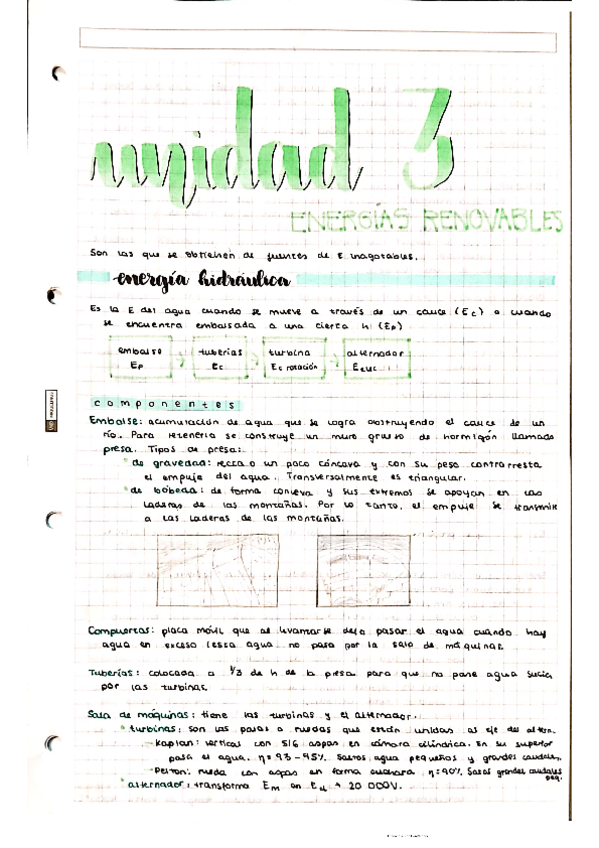 unidad 3
ENERGÍAS RENOVABLES
Son las que se obtienen de fuentes de E inagotables.
energía hidráulica
Es la E del agua cuando se mueve a través de un cauce (Ec) o cuando
se encuentra embalsada a una cierta h (Ep)
embalse → tuberías → turbina → alternador
Ep Ec Ec rotación Eeléc
componentes
Embalse: acumulación de agua que se logra obstruyendo el cauce de un
río. Para retenerla se construye un muro grueso de hormigón llamado
presa. Tipos de presa:
de gravedad: recta o un poco cóncava y con su peso contrarresta
el empuje del agua. Transversalmente es triangular.
de bóveda: de forma convexa y sus extremos se apoyan en las
laderas de las montañas. Por lo tanto, el empuje se transmite
a las laderas de las montañas.
Compuertas: placa móvil que al levantarse deja pasar el agua cuando hay
agua en exceso (essa agua no pasa por la sala de máquinas
Tuberías: colocada a 1/3 de h de la presa para que no pase agua sucia
por las turbinas.
Sala de máquinas: tiene las turbinas y el alternador.
turbinas: son las palas o ruedas que están unidas al eje del altern.
- Kaplan: vertical con 5/6 aspas en cámara cilíndrica. En su superior
pasa el agua. η=93-95%. Saltos agua pequeños y grandes caudales.
- Pelton: rueda con aspas en forma cuchara. η=90%. Saltos grandes caudales
peq.
alternador: transforma Em en Eel → 20 000V.